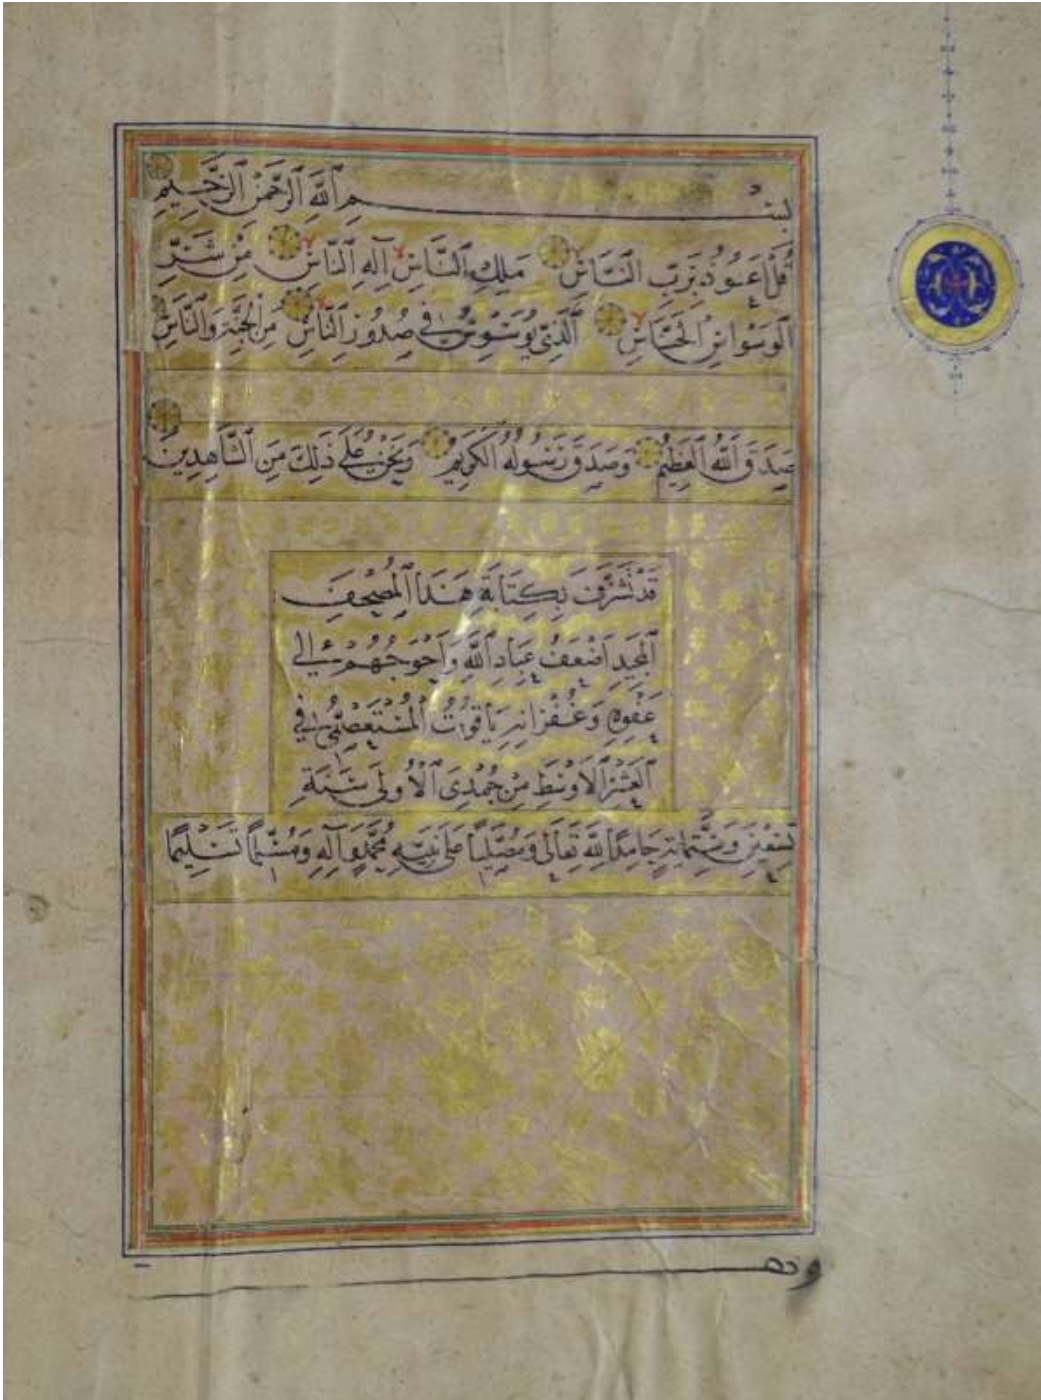 بِسْمِ ٱللَّهِ ٱلرَّحْمَٰنِ ٱلرَّحِيمِ
قُلْ أَعُوذُ بِرَبِّ ٱلنَّاسِ مَلِكِ ٱلنَّاسِ إِلَٰهِ ٱلنَّاسِ مِنْ شَرِّ
ٱلْوَسْوَاسِ ٱلْخَنَّاسِ ٱلَّذِي يُوَسْوِسُ فِي صُدُورِ ٱلنَّاسِ مِنَ ٱلْجِنَّةِ وَٱلنَّاسِ
صَدَقَ ٱللَّهُ ٱلْعَظِيمُ وَصَدَقَ رَسُولُهُ ٱلْكَرِيمُ وَنَحْنُ عَلَى ذَٰلِكَ مِنَ ٱلشَّاهِدِينَ
قَدْ تَشَرَّفَ بِكِتَابَةِ هَٰذَا ٱلْمُصْحَفِ
ٱلْمَجِيدِ أَضْعَفُ عِبَادِ ٱللَّهِ وَأَحْوَجُهُمْ إِلَى
عَفْوِهِ وَغُفْرَانِهِ يَاقُوتُ ٱلْمُسْتَعْصِمِيُّ فِي
ٱلْعَشْرِ ٱلْأَوْسَطِ مِنْ جُمَدِىَ ٱلْأُولَى سَنَةِ
تِسْعِينَ وَسِتِّمِائَةٍ حَامِدًا لِلَّهِ تَعَالَى وَمُصَلِّيًا عَلَى نَبِيِّهِ مُحَمَّدٍ وَآلِهِ وَمُسَلِّمًا تَسْلِيمًا